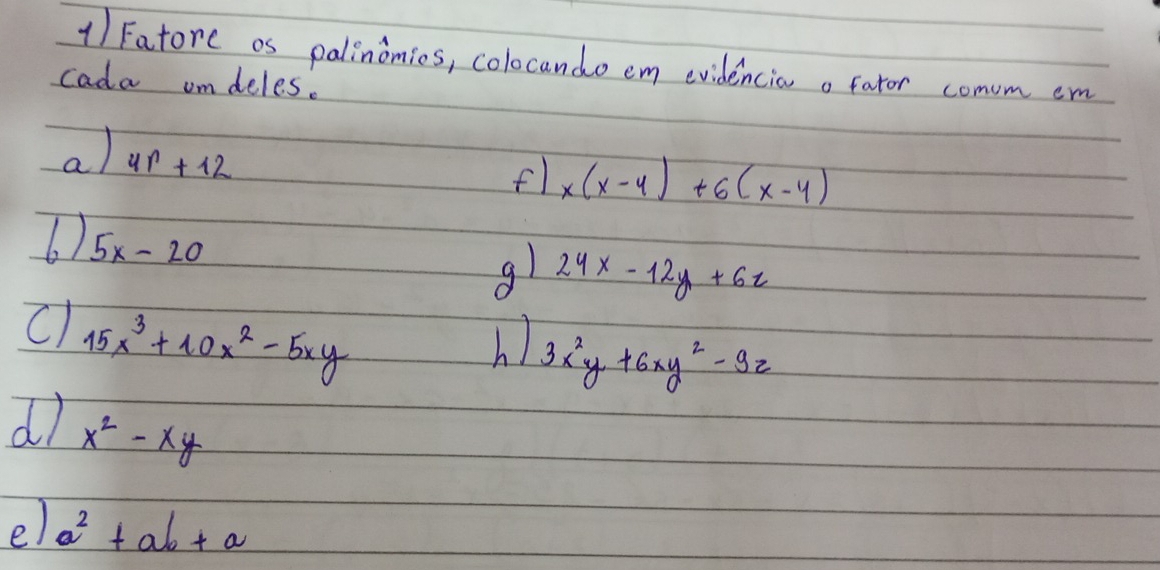 1) Fatore os palinômios, colocando em evidência o fator comum em
cada um deles.
a) 4r + 12
f) x(x-4) + 6(x-4)
b) 5x - 20
g) 24x - 12y + 6z
c) 15x³ + 10x² - 5xy
h) 3x²y + 6xy² - 9z
d) x² - xy
e) a² + ab + a